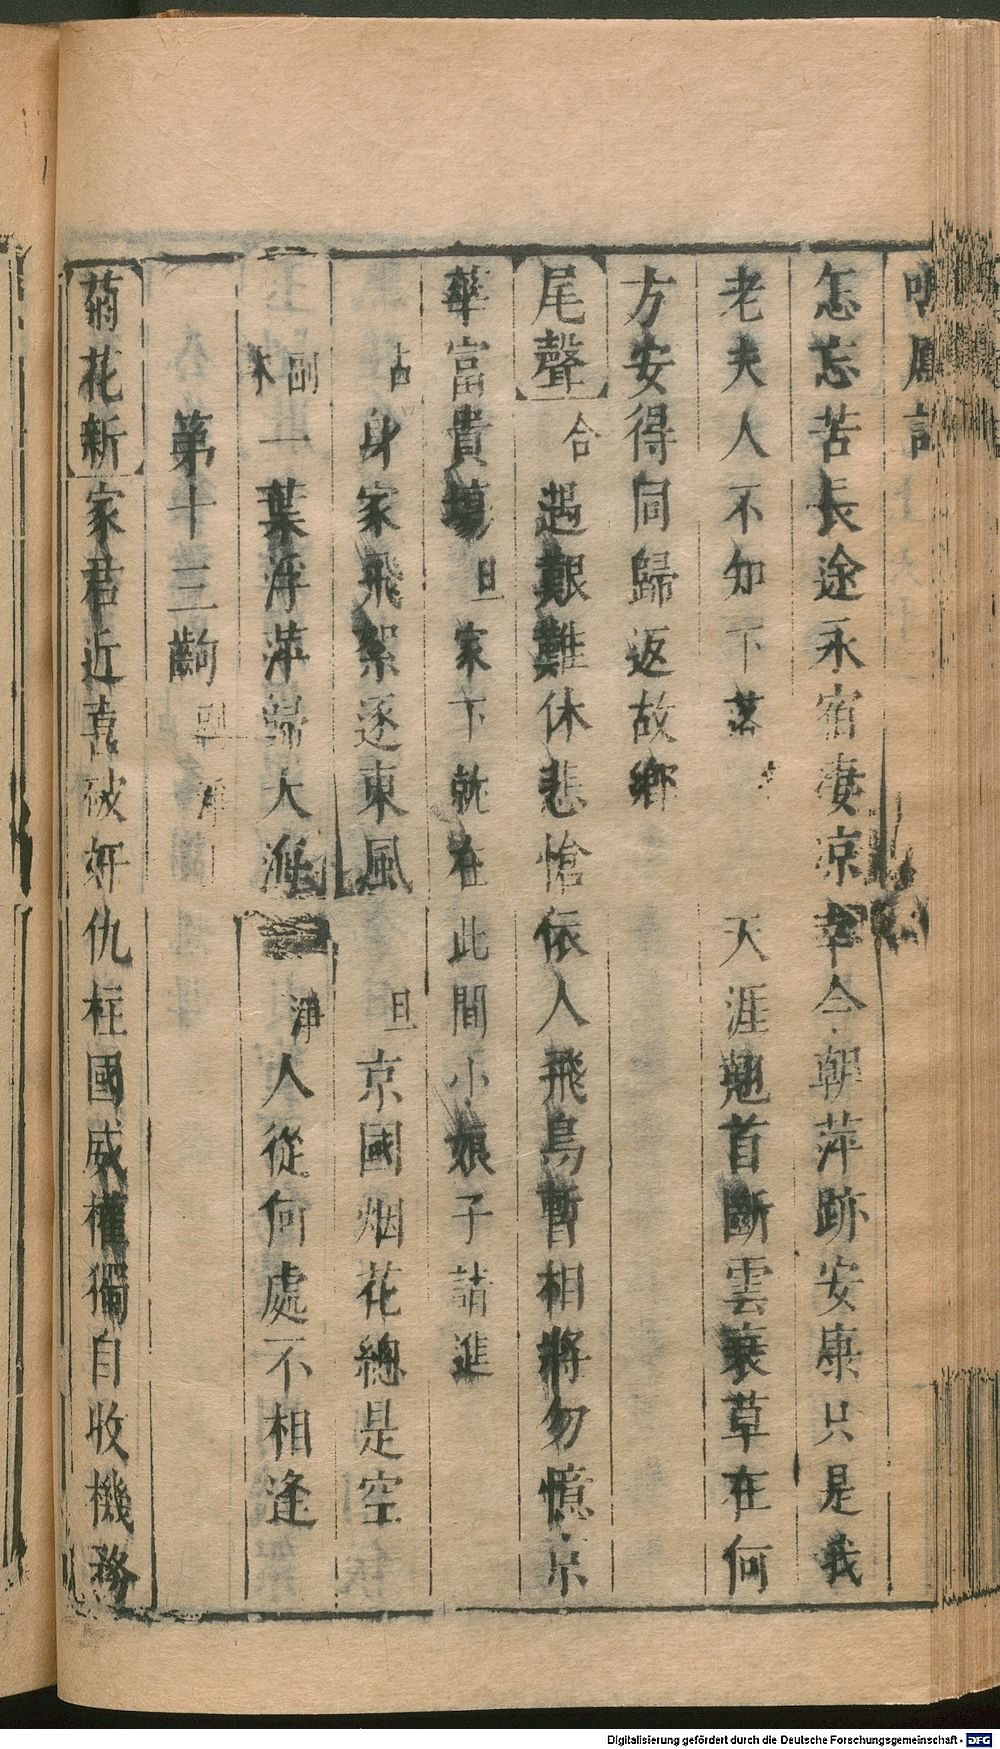 鳴鳳記
怎忘苦長途永宿淒凉幸今朝萍跡安康只是我
老夫人不知下落 天涯翹首斷雲衰草在何
方安得同歸返故鄉
尾聲 合 遇艱難休悲愴依人飛鳥暫相將勿憶京
華富貴塲 旦 家下就在此間小娘子請進
占 身家飛絮逐東風 旦 京國烟花總是空
副末 一葉浮萍歸大海 淨 人從何處不相逢
第十三齣
菊花新 家君近喜破奸仇柱國威權獨自收機務
Digitalisierung gefördert durch die Deutsche Forschungsgemeinschaft - DFG